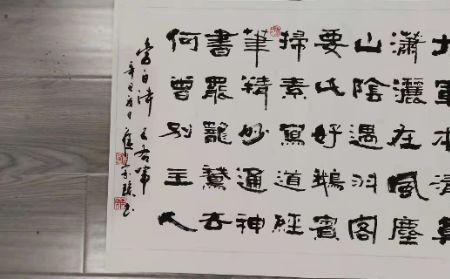 軍本清真
瀟灑在風塵
山陰遇羽客
要此好鵝賓
掃素寫道經
筆精妙通神
書罷籠鵝去
何曾別主人
李白詩 王右軍
辛丑